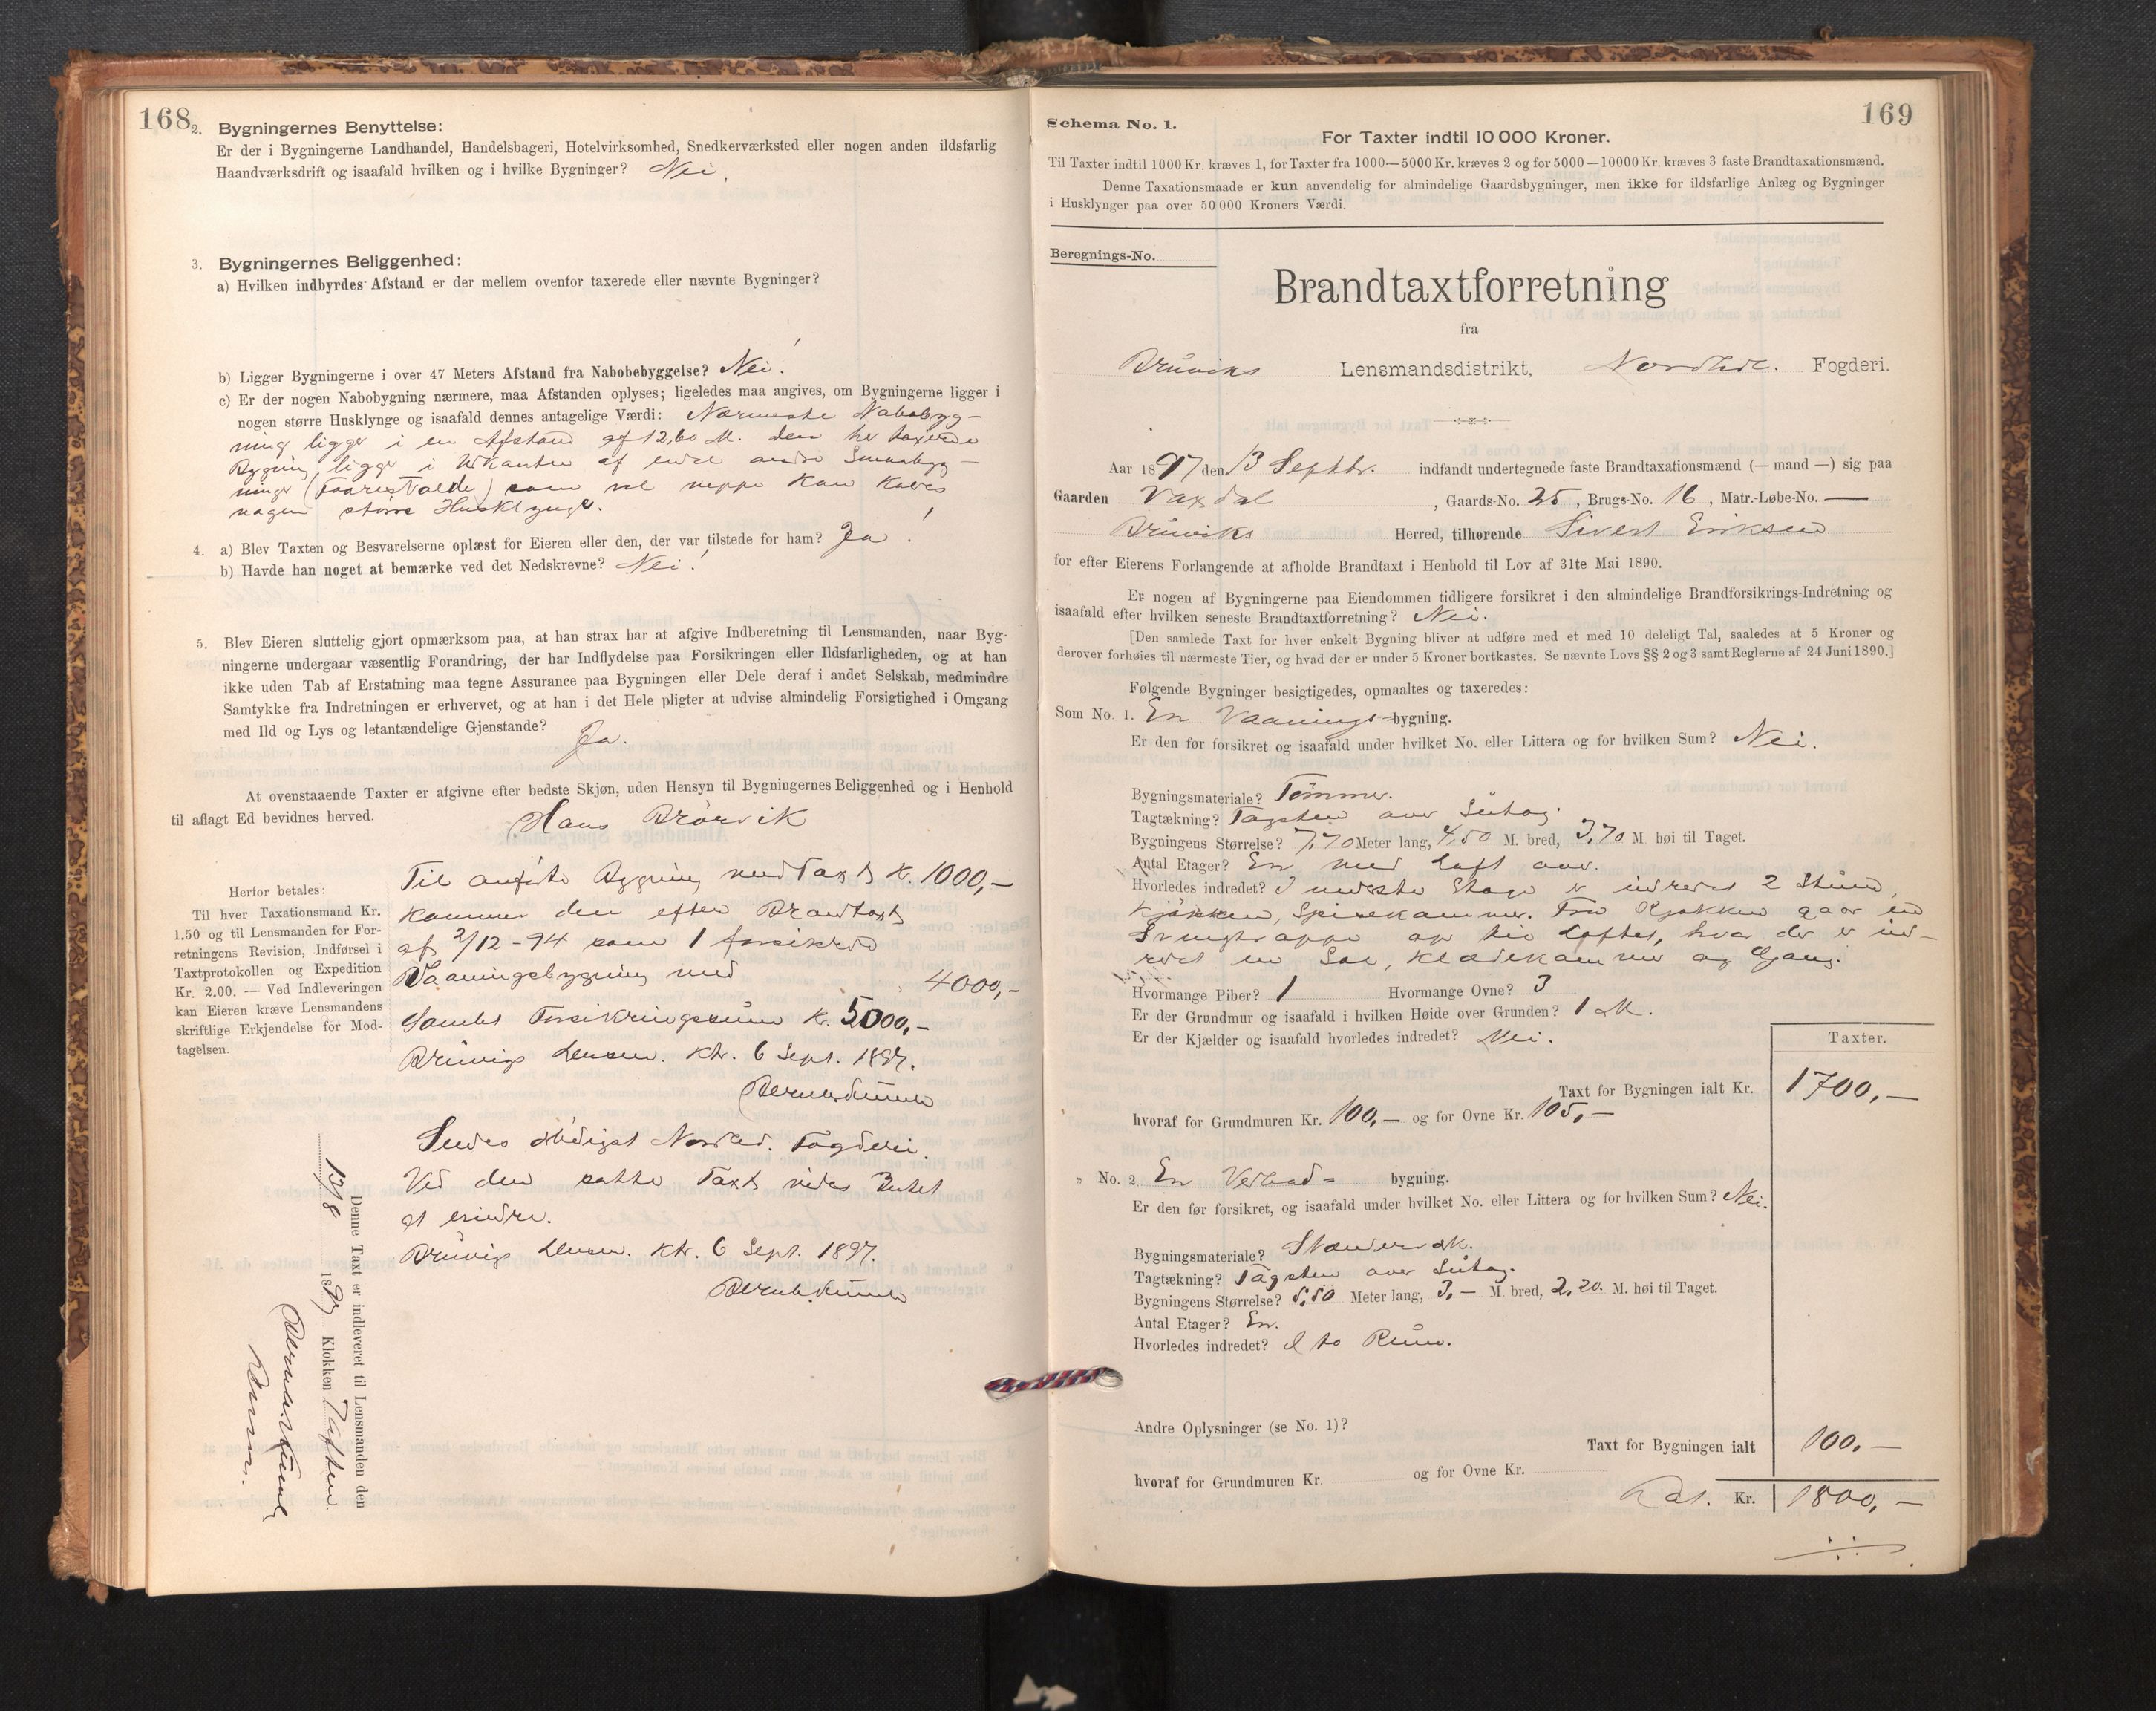 168
2. Bygningernes Benyttelse:
Er der i Bygningerne Landhandel, Handelsbageri, Hotelvirksomhed, Snedkerværksted eller nogen anden ildsfarlig
Haandværksdrift og isaafald hvilken og i hvilke Bygninger? Nei.
3. Bygningernes Beliggenhed:
a) Hvilken indbyrdes Afstand er der mellem ovenfor taxerede eller nævnte Bygninger?
b) Ligger Bygningerne i over 47 Meters Afstand fra Nabobebyggelse? Nei!
c) Er der nogen Nabobygning nærmere, maa Afstanden oplyses; ligeledes maa angives, om Bygningerne ligger i
nogen større Husklynge og isaafald dennes antagelige Værdi: Nærmeste Nabobyg-
ning ligger i en Afstand af 12,60 M. den her taxerede
Bygning ligger i Udkanten af endel andre Smaabyg-
ninger som vel neppe kan kaldes
nogen større Husklynge.
4. a) Blev Taxten og Besvarelserne oplæst for Eieren eller den, der var tilstede for ham? Ja!
b) Havde han noget at bemærke ved det Nedskrevne? Nei!
5. Blev Eieren sluttelig gjort opmærksom paa, at han strax har at afgive Indberetning til Lensmanden, naar Byg-
ningerne undergaar væsentlig Forandring, der har Indflydelse paa Forsikringen eller Ildsfarligheden, og at han
ikke uden Tab af Erstatning maa tegne Assurance paa Bygningen eller Dele deraf i andet Selskab, medmindre
Samtykke fra Indretningen er erhvervet, og at han i det Hele pligter at udvise almindelig Forsigtighed i Omgang
med Ild og Lys og letantændelige Gjenstande? Ja.
At ovenstaaende Taxter er afgivne efter bedste Skjøn, uden Hensyn til Bygningernes Beliggenhed og i Henhold
til aflagt Ed bevidnes herved.
Hans Brørvik
Herfor betales:
Til hver Taxationsmand Kr.
1.50 og til Lensmanden for For-
retningens Revision, Indførsel i
Taxtprotokollen og Expedition
Kr. 2.00. — Ved Indleveringen
kan Eieren kræve Lensmandens
skriftlige Erkjendelse for Mod-
tagelsen.
Til anførte Bygning med Taxt Kr. 1000,-
kommer den efter Brandtaxt
af 2/12-94 som 1 forsikrede
Vaaningsbygning med 4000,-
Samlet Forsikringssum Kr. 5000,-
Bruvigs Lensm. Ktr. 6 Sept. 1897.
Sendes Nordhd. Fogderi.
Ved den satte Taxt vides Intet
at erindre.
Bruvigs Lensm. Ktr. 6 Sept. 1897.
Denne Taxt er indleveret til Lensmanden den
13/8 1897 Klokken 7 Aften.
169
Schema No. 1.
For Taxter indtil 10 000 Kroner.
Til Taxter indtil 1000 Kr. kræves 1, for Taxter fra 1000—5000 Kr. kræves 2 og for 5000—10000 Kr. kræves 3 faste Brandtaxationsmænd.
Denne Taxationsmaade er kun anvendelig for almindelige Gaardsbygninger, men ikke for ildsfarlige Anlæg og Bygninger
i Husklynger paa over 50 000 Kroners Værdi.
Beregnings-No.
Brandtaxtforretning
fra
Bruviks Lensmandsdistrikt, Nordhdl. Fogderi.
Aar 1897 den 13 Septbr. indfandt undertegnede faste Brandtaxationsmænd (— mand —) sig paa
Gaarden Vaxdal, Gaards-No. 25, Brugs-No. 16, Matr.-Løbe-No. —
Bruviks Herred, tilhørende Sivert Eriksen
for efter Eierens Forlangende at afholde Brandtaxt i Henhold til Lov af 31te Mai 1890.
Er nogen af Bygningerne paa Eiendommen tidligere forsikret i den almindelige Brandforsikrings-Indretning og
isaafald efter hvilken seneste Brandtaxtforretning? Nei.
[Den samlede Taxt for hver enkelt Bygning bliver at udføre med et med 10 deleligt Tal, saaledes at 5 Kroner og
derover forhøies til nærmeste Tier, og hvad der er under 5 Kroner bortkastes. Se nævnte Lovs §§ 2 og 3 samt Reglerne af 24 Juni 1890.]
Følgende Bygninger besigtigedes, opmaaltes og taxeredes:
Som No. 1. En Vaanings-bygning.
Er den før forsikret og isaafald under hvilket No. eller Littera og for hvilken Sum? Nei.
Bygningsmateriale? Tømmer.
Tagtækning? Tagsten over Sutag.
Bygningens Størrelse? 7,70 Meter lang, 4,50 M. bred, 3,70 M høi til Taget.
Antal Etager? En, med Loft over.
Hvorledes indredet? I nederste Etage er indredet 2 Stuer,
Kjøkken, Spisekammer. Fra Kjøkken gaar en
Svingtrappe op til Loftet, hvor der er ind-
redet en Sal, Klædekammer og Gang.
Hvormange Piber? 1 Hvormange Ovne? 3
Er der Grundmur og isaafald i hvilken Høide over Grunden? 1 M.
Er der Kjælder og isaafald hvorledes indredet? Nei.
Taxter.
Taxt for Bygningen ialt Kr. 1700,—
hvoraf for Grundmuren Kr. 100,— og for Ovne Kr. 105,—
„ No. 2. En Vedhus- bygning.
Er den før forsikret, og isaafald under hvilket No. eller Littera og for hvilken Sum? Nei.
Bygningsmateriale? Stenderværk.
Tagtækning? Tagsten over Sutag.
Bygningens Størrelse? 5,50 Meter lang, 3,— M. bred, 2,20. M. høi til Taget.
Antal Etager? En.
Hvorledes indredet? I to Rum.
Andre Oplysninger (se No. 1)?
Taxt for Bygningen ialt 100.—
hvoraf for Grundmuren Kr. og for Ovne Kr.
Lat. Kr. 1800,—